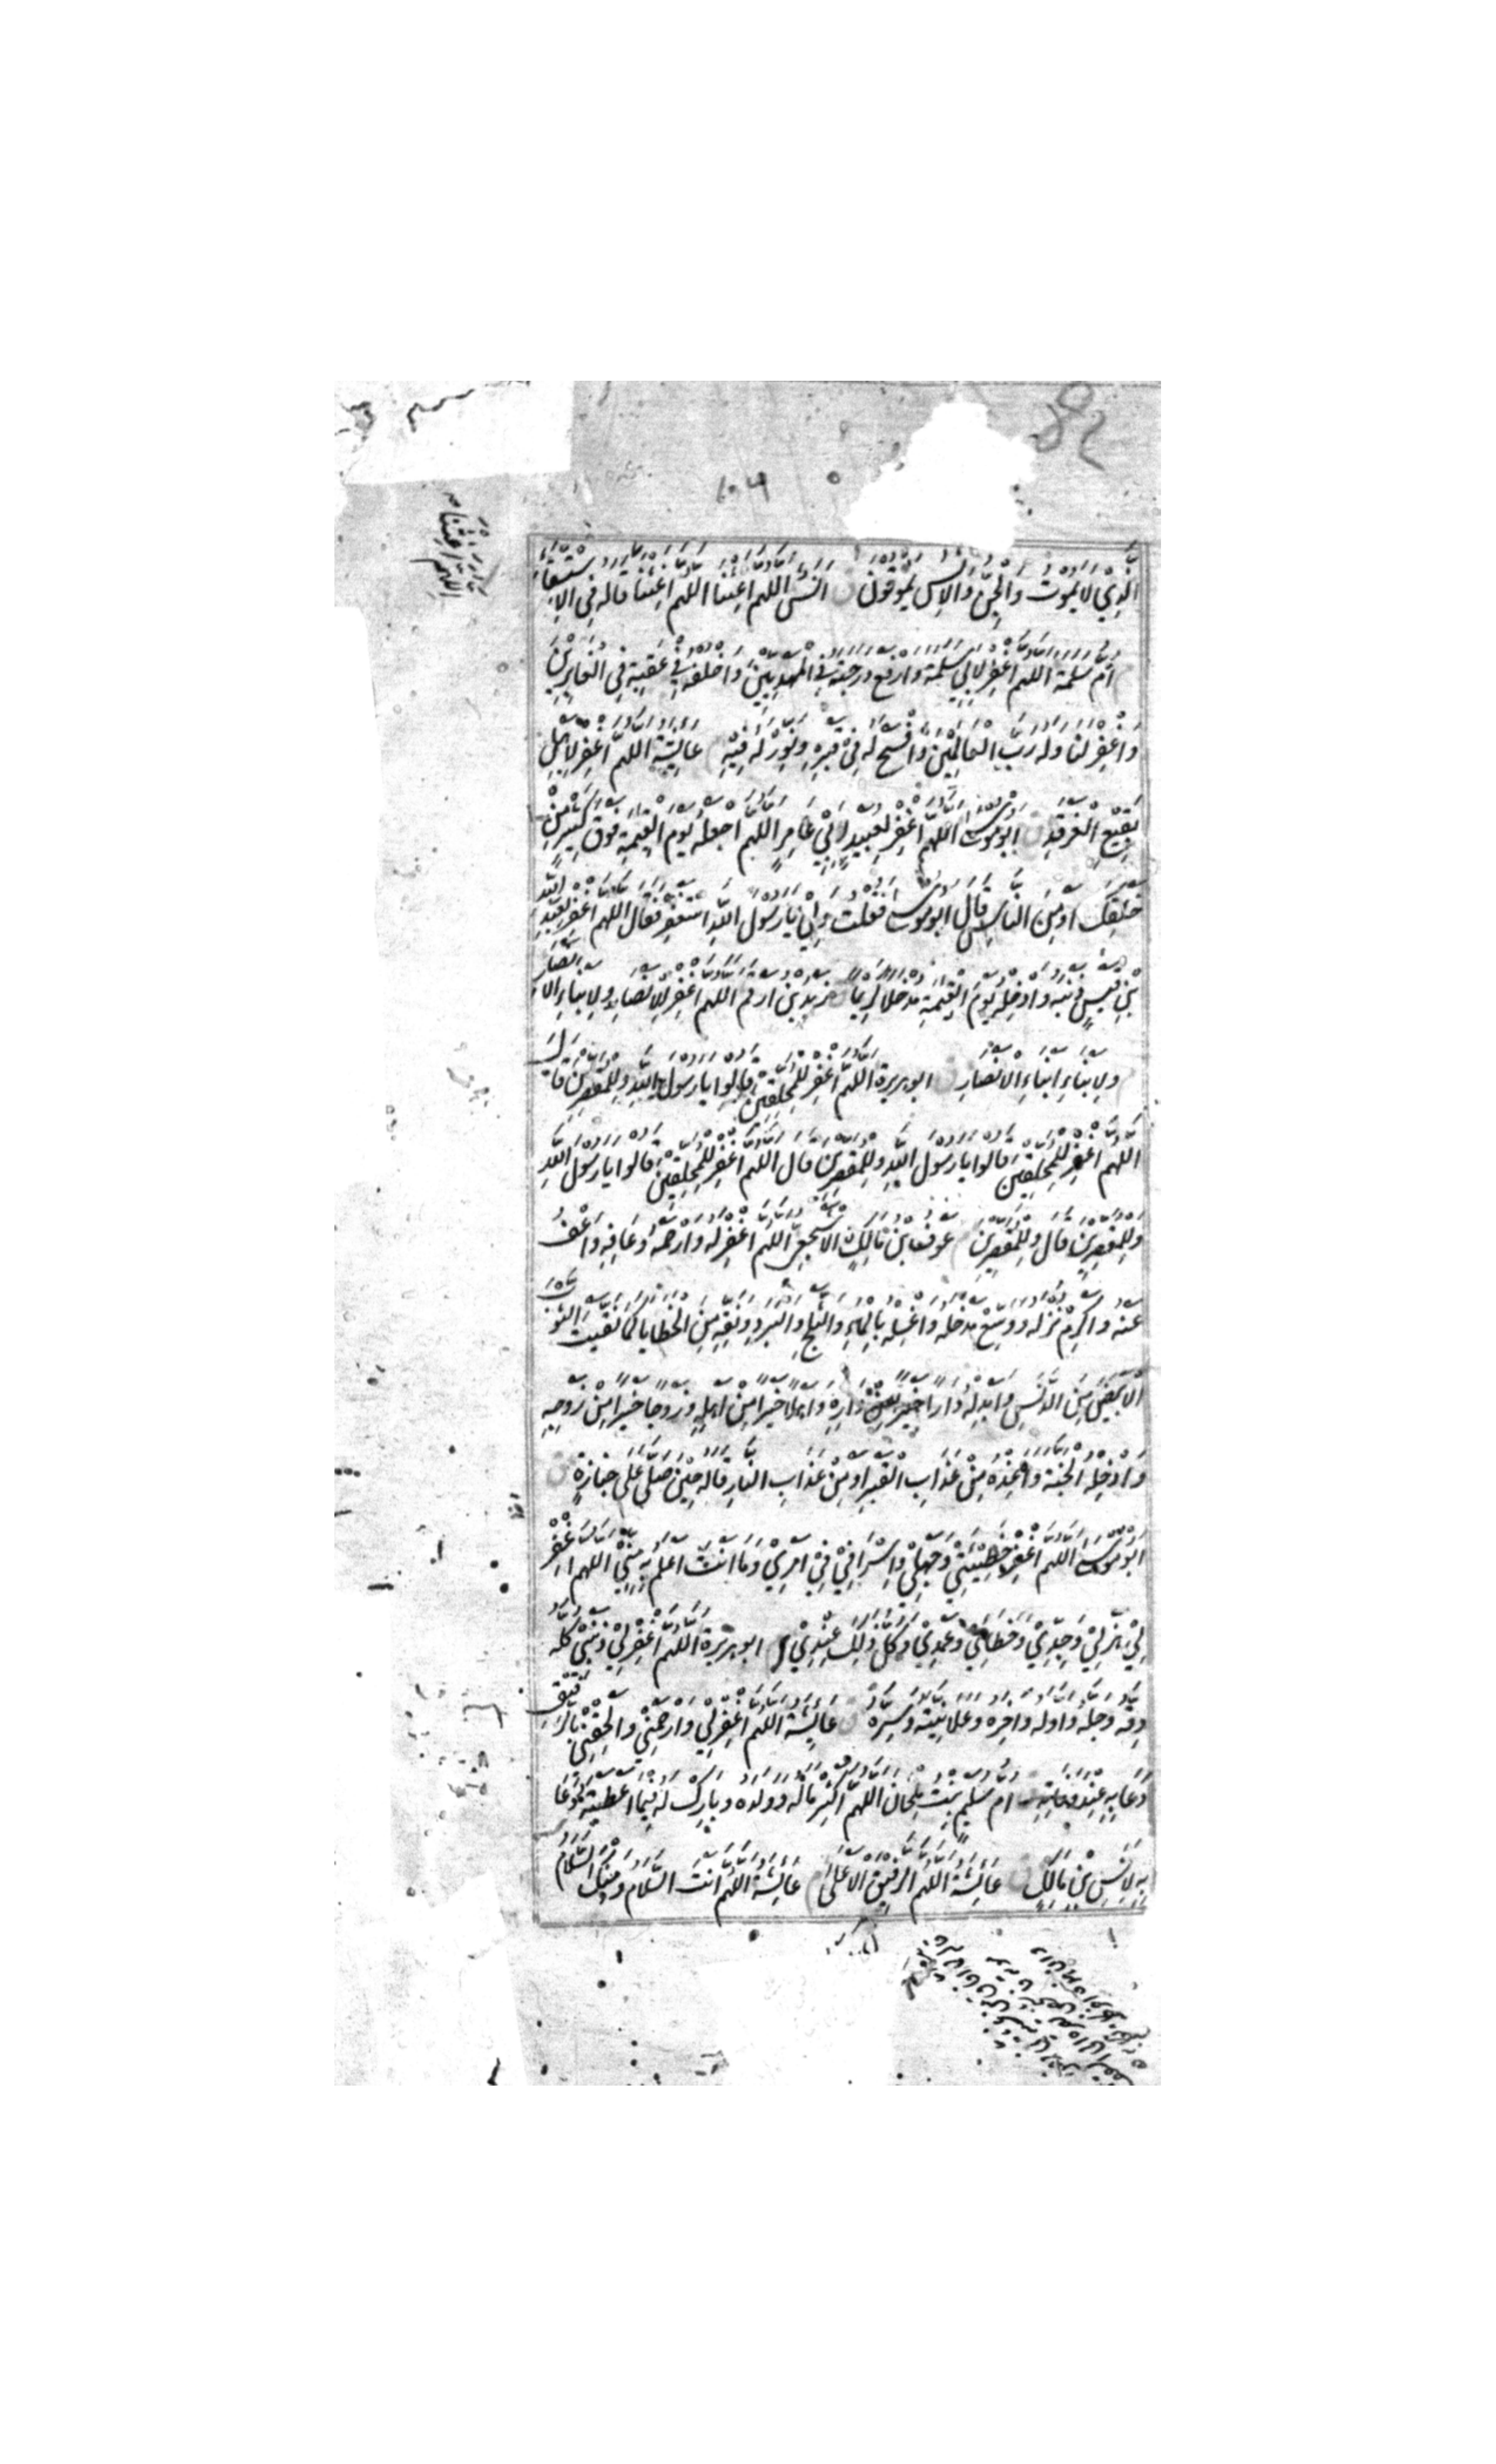 اَلَّذِي لَا يَمُوتُ وَالْجِنُّ وَالْاِنْسُ يَمُوتُونَ ق اَنَسٌ اللَّهُمَّ اَغِثْنَا اللَّهُمَّ اَغِثْنَا قَالَهُ فِي الْاِسْتِسْقَاءِ
م اُمُّ سَلَمَةَ اللَّهُمَّ اغْفِرْ لِاَبِي سَلَمَةَ وَارْفَعْ دَرَجَتَهُ فِي الْمَهْدِيِّينَ وَاخْلُفْهُ فِي عَقِبِهِ فِي الْغَابِرِينَ
وَاغْفِرْ لَنَا وَلَهُ رَبَّ الْعَالَمِيْنَ وَافْسَحْ لَهُ فِيْ قَبْرِهِ وَنَوِّرْ لَهُ فِيْهِ م عَايِشَةُ اللَّهُمَّ اغْفِرْ لِاَهْلِ
بَقِيْعِ الْغَرْقَدِ ق اَبُوْ مُوْسٰى اللَّهُمَّ اغْفِرْ لِعُبَيْدٍ اَبِيْ عَامِرٍ اللَّهُمَّ اجْعَلْهُ يَوْمَ الْقِيٰمَةِ فَوْقَ كَثِيْرٍ مِنْ
خَلْقِكَ اَوْ مِنَ النَّاسِ قَالَ اَبُوْ مُوْسٰى فَقُلْتُ وَلِيْ يَا رَسُوْلَ اللّٰهِ اسْتَغْفِرْ فَقَالَ اللَّهُمَّ اغْفِرْ لِعَبْدِ اللّٰهِ
بْنِ قَيْسٍ ذَنْبَهُ وَاَدْخِلْهُ يَوْمَ الْقِيٰمَةِ مُدْخَلًا كَرِيْمًا ق زَيْدُ بْنُ اَرْقَمَ اللَّهُمَّ اغْفِرْ لِلْاَنْصَارِ وَلِاَبْنَاءِ الْاَنْصَارِ
وَلِاَبْنَاءِ اَبْنَاءِ الْاَنْصَارِ ق اَبُوْ هُرَيْرَةَ اللَّهُمَّ اغْفِرْ لِلْمُحَلِّقِيْنَ قَالُوْا يَا رَسُوْلَ اللّٰهِ وَلِلْمُقَصِّرِيْنَ قَالَ
اللَّهُمَّ اغْفِرْ لِلْمُحَلِّقِيْنَ قَالُوْا يَا رَسُوْلَ اللّٰهِ وَلِلْمُقَصِّرِيْنَ قَالَ اللَّهُمَّ اغْفِرْ لِلْمُحَلِّقِيْنَ قَالُوْا يَا رَسُوْلَ اللّٰهِ
وَلِلْمُقَصِّرِيْنَ قَالَ وَلِلْمُقَصِّرِيْنَ م عَوْفُ بْنُ مَالِكٍ الْاَشْجَعِيُّ اللَّهُمَّ اغْفِرْ لَهُ وَارْحَمْهُ وَعَافِهِ وَاعْفُ
عَنْهُ وَاَكْرِمْ نُزُلَهُ وَوَسِّعْ مُدْخَلَهُ وَاغْسِلْهُ بِالْمَاءِ وَالثَّلْجِ وَالْبَرَدِ وَنَقِّهِ مِنَ الْخَطَايَا كَمَا نَقَّيْتَ الثَّوْبَ
الْاَبْيَضَ مِنَ الدَّنَسِ وَاَبْدِلْهُ دَارًا خَيْرًا مِنْ دَارِهِ وَاَهْلًا خَيْرًا مِنْ اَهْلِهِ وَزَوْجًا خَيْرًا مِنْ زَوْجِهِ
وَاَدْخِلْهُ الْجَنَّةَ وَاَعِذْهُ مِنْ عَذَابِ الْقَبْرِ اَوْ مِنْ عَذَابِ النَّارِ قَالَهُ حِيْنَ صَلّٰى عَلٰى جَنَازَةٍ ق
اَبُوْ مُوْسٰى اللَّهُمَّ اغْفِرْ لِيْ خَطِيْئَتِيْ وَجَهْلِيْ وَاِسْرَافِيْ فِيْ اَمْرِيْ وَمَا اَنْتَ اَعْلَمُ بِهِ مِنِّيْ اللَّهُمَّ اغْفِرْ
لِيْ هَزْلِيْ وَجِدِّيْ وَخَطَايَ وَعَمَدِيْ وَكُلُّ ذٰلِكَ عِنْدِيْ م اَبُوْ هُرَيْرَةَ اللَّهُمَّ اغْفِرْ لِيْ ذَنْبِيْ كُلَّهُ
دِقَّهُ وَجِلَّهُ وَاَوَّلَهُ وَاٰخِرَهُ وَعَلَانِيَتَهُ وَسِرَّهُ ق عَائِشَةُ اللَّهُمَّ اغْفِرْ لِيْ وَارْحَمْنِيْ وَاَلْحِقْنِيْ بِالرَّفِيْقِ
دَعَا بِهِ عِنْدَ وَفَاتِهِ ق اُمُّ سُلَيْمٍ بِنْتُ مِلْحَانَ اللَّهُمَّ اَكْثِرْ مَالَهُ وَوَلَدَهُ وَبَارِكْ لَهُ فِيْمَا اَعْطَيْتَهُ دَعَا
بِهِ لِاَنَسِ بْنِ مَالِكٍ ق عَائِشَةُ اللَّهُمَّ الرَّفِيْقَ الْاَعْلٰى م عَائِشَةُ اللَّهُمَّ اَنْتَ السَّلَامُ وَمِنْكَ السَّلَامُ